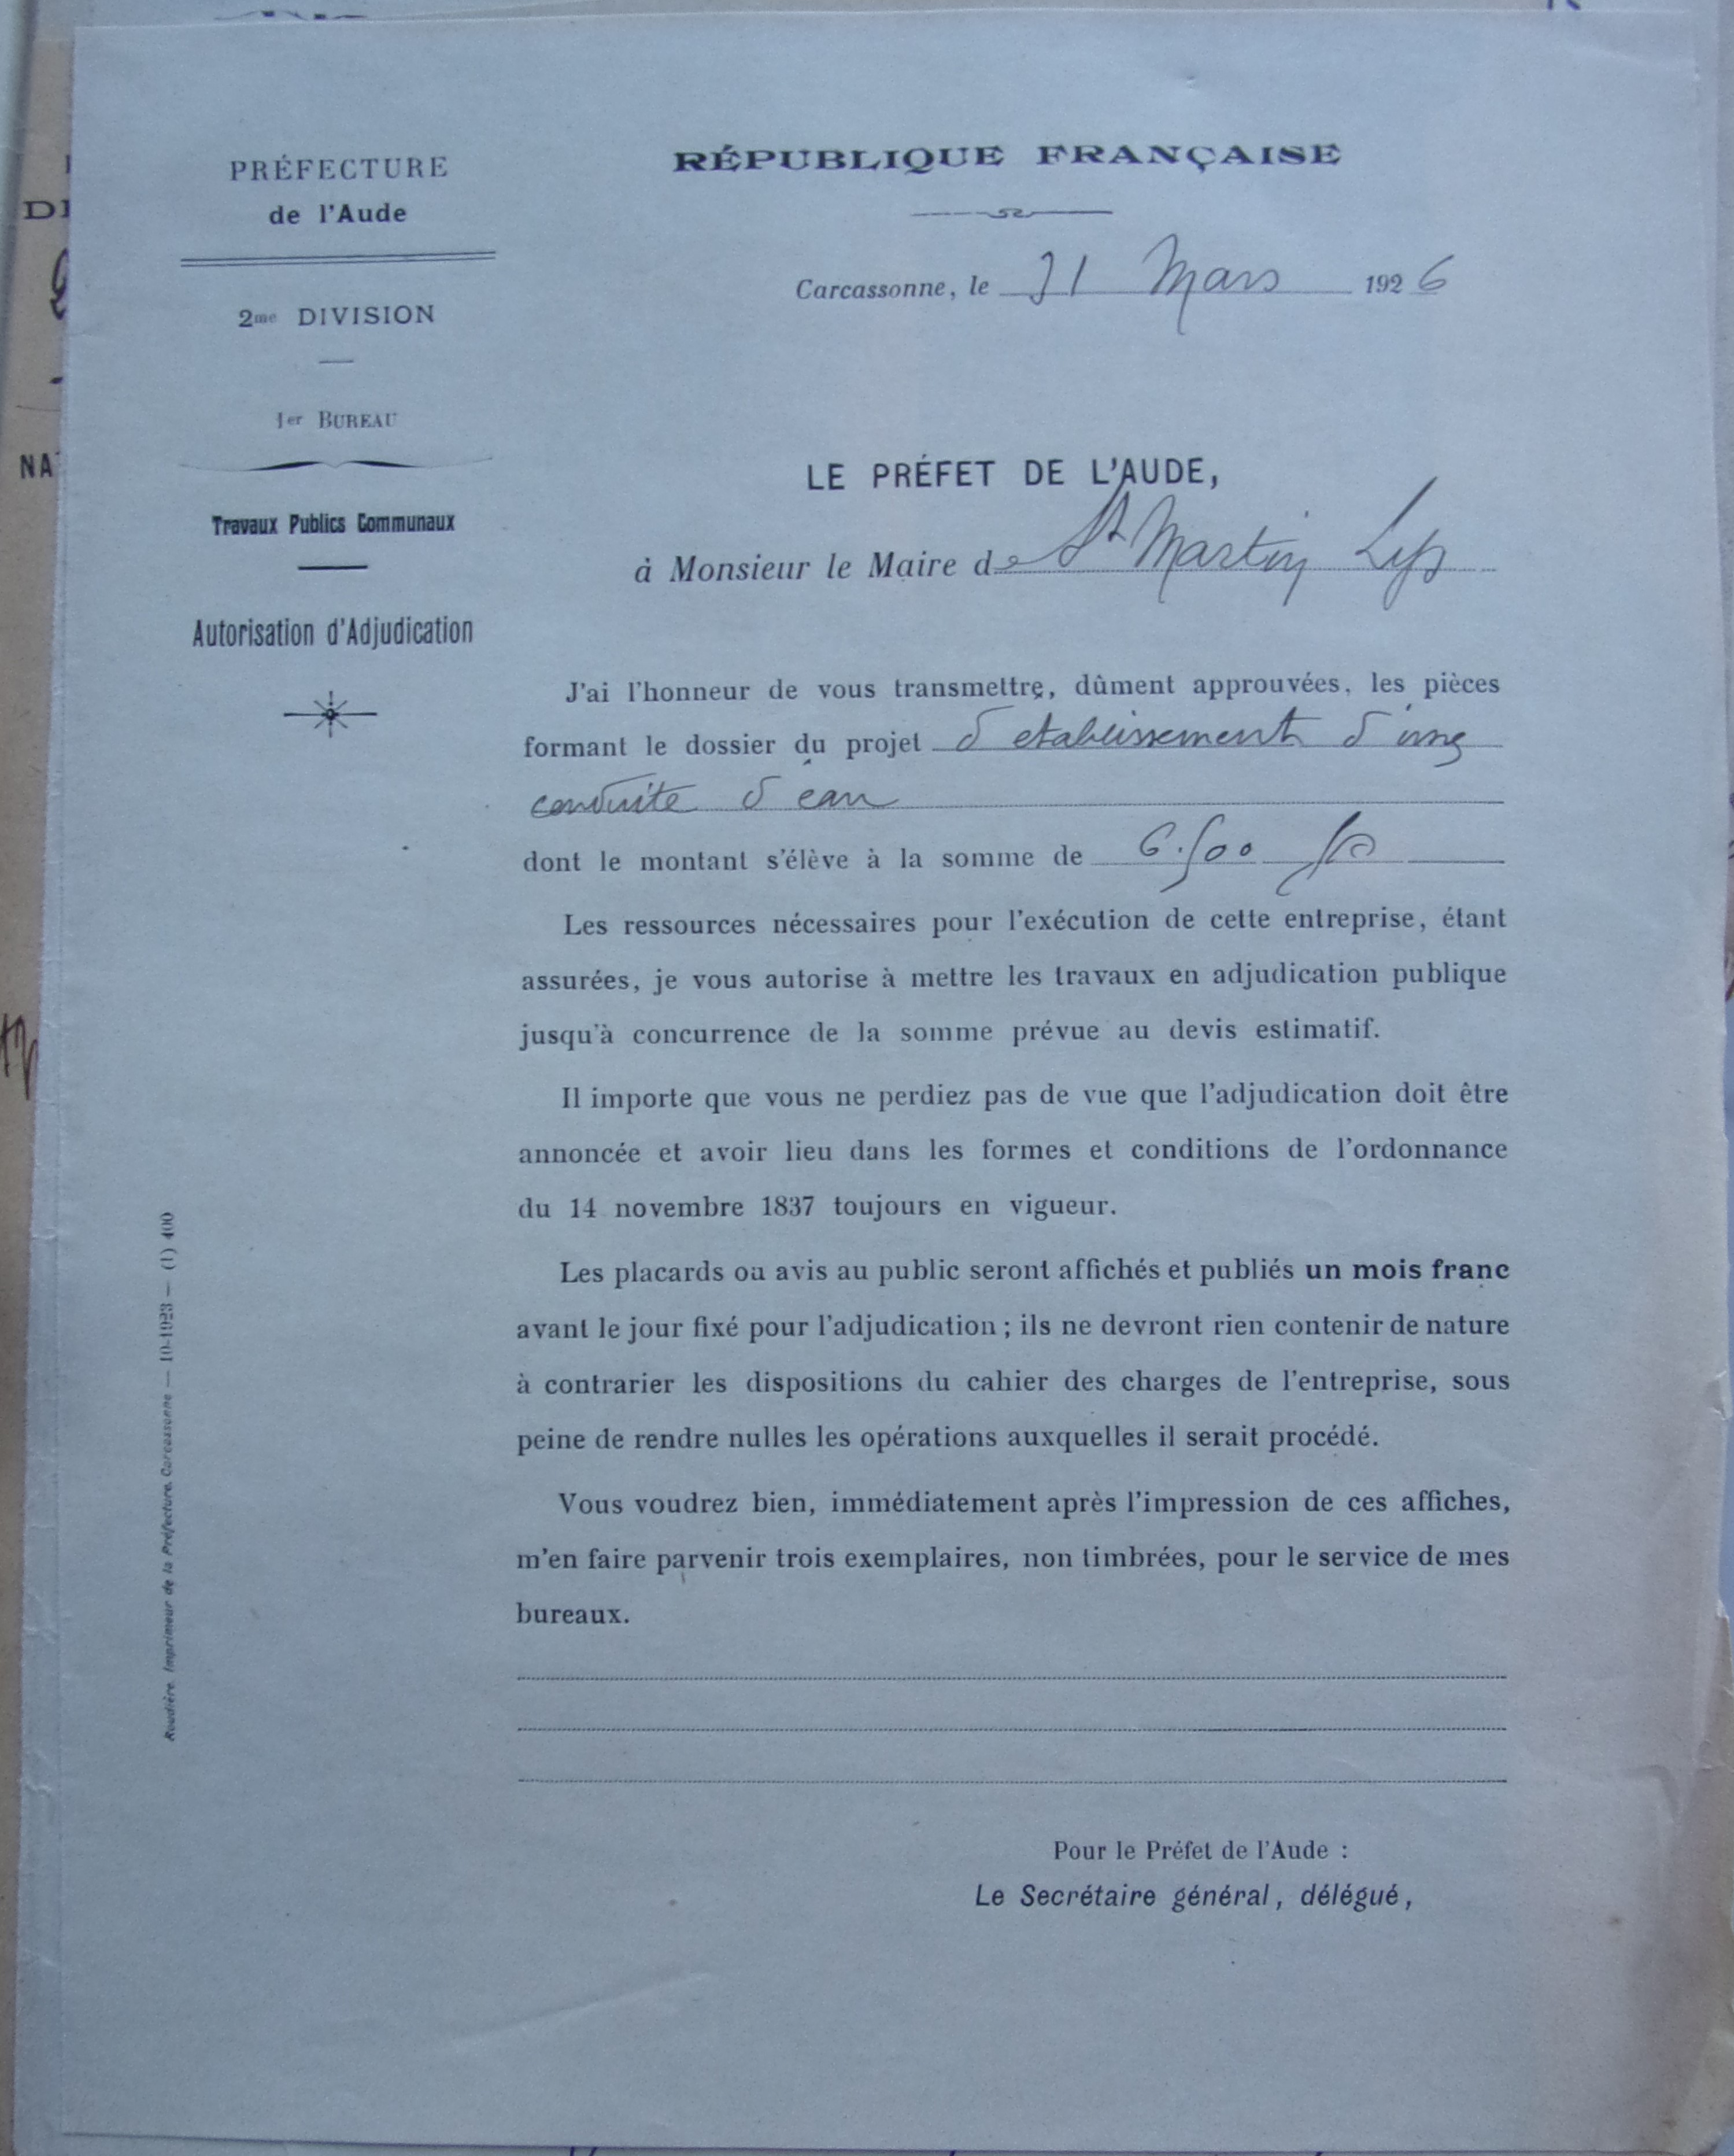 PRÉFECTURE
de l'Aude
2me DIVISION
1er BUREAU
Travaux Publics Communaux
Autorisation d'Adjudication
RÉPUBLIQUE FRANÇAISE
Carcassonne, le 31 Mars 1926
LE PRÉFET DE L'AUDE,
à Monsieur le Maire de St Martin Lys
J'ai l'honneur de vous transmettre, dûment approuvées, les pièces
formant le dossier du projet d'etablissement d'une
conduite d'eau
dont le montant s'élève à la somme de 6.500 fr
Les ressources nécessaires pour l'exécution de cette entreprise, étant
assurées, je vous autorise à mettre les travaux en adjudication publique
jusqu'à concurrence de la somme prévue au devis estimatif.
Il importe que vous ne perdiez pas de vue que l'adjudication doit être
annoncée et avoir lieu dans les formes et conditions de l'ordonnance
du 14 novembre 1837 toujours en vigueur.
Les placards ou avis au public seront affichés et publiés un mois franc
avant le jour fixé pour l'adjudication ; ils ne devront rien contenir de nature
à contrarier les dispositions du cahier des charges de l'entreprise, sous
peine de rendre nulles les opérations auxquelles il serait procédé.
Vous voudrez bien, immédiatement après l'impression de ces affiches,
m'en faire parvenir trois exemplaires, non timbrées, pour le service de mes
bureaux.
Pour le Préfet de l'Aude :
Le Secrétaire général, délégué,
Roudière. Imprimeur de la Préfecture. Carcassonne — 10-1923 — (1) 400
NA